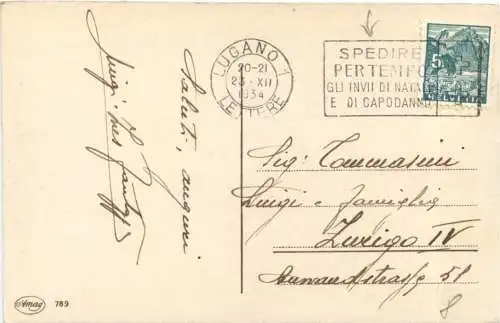 Saluti, auguri
Luigi
LUGANO 1
20-21
23·XII
1934
LETTERE
SPEDIRE
PER TEMPO
GLI INVII DI NATA
E DI CAPODANNO
5
HELVETIA
Sig: Tommasini
Luigi e famiglia
Zurigo IV
strasse 51
8
Amag
789